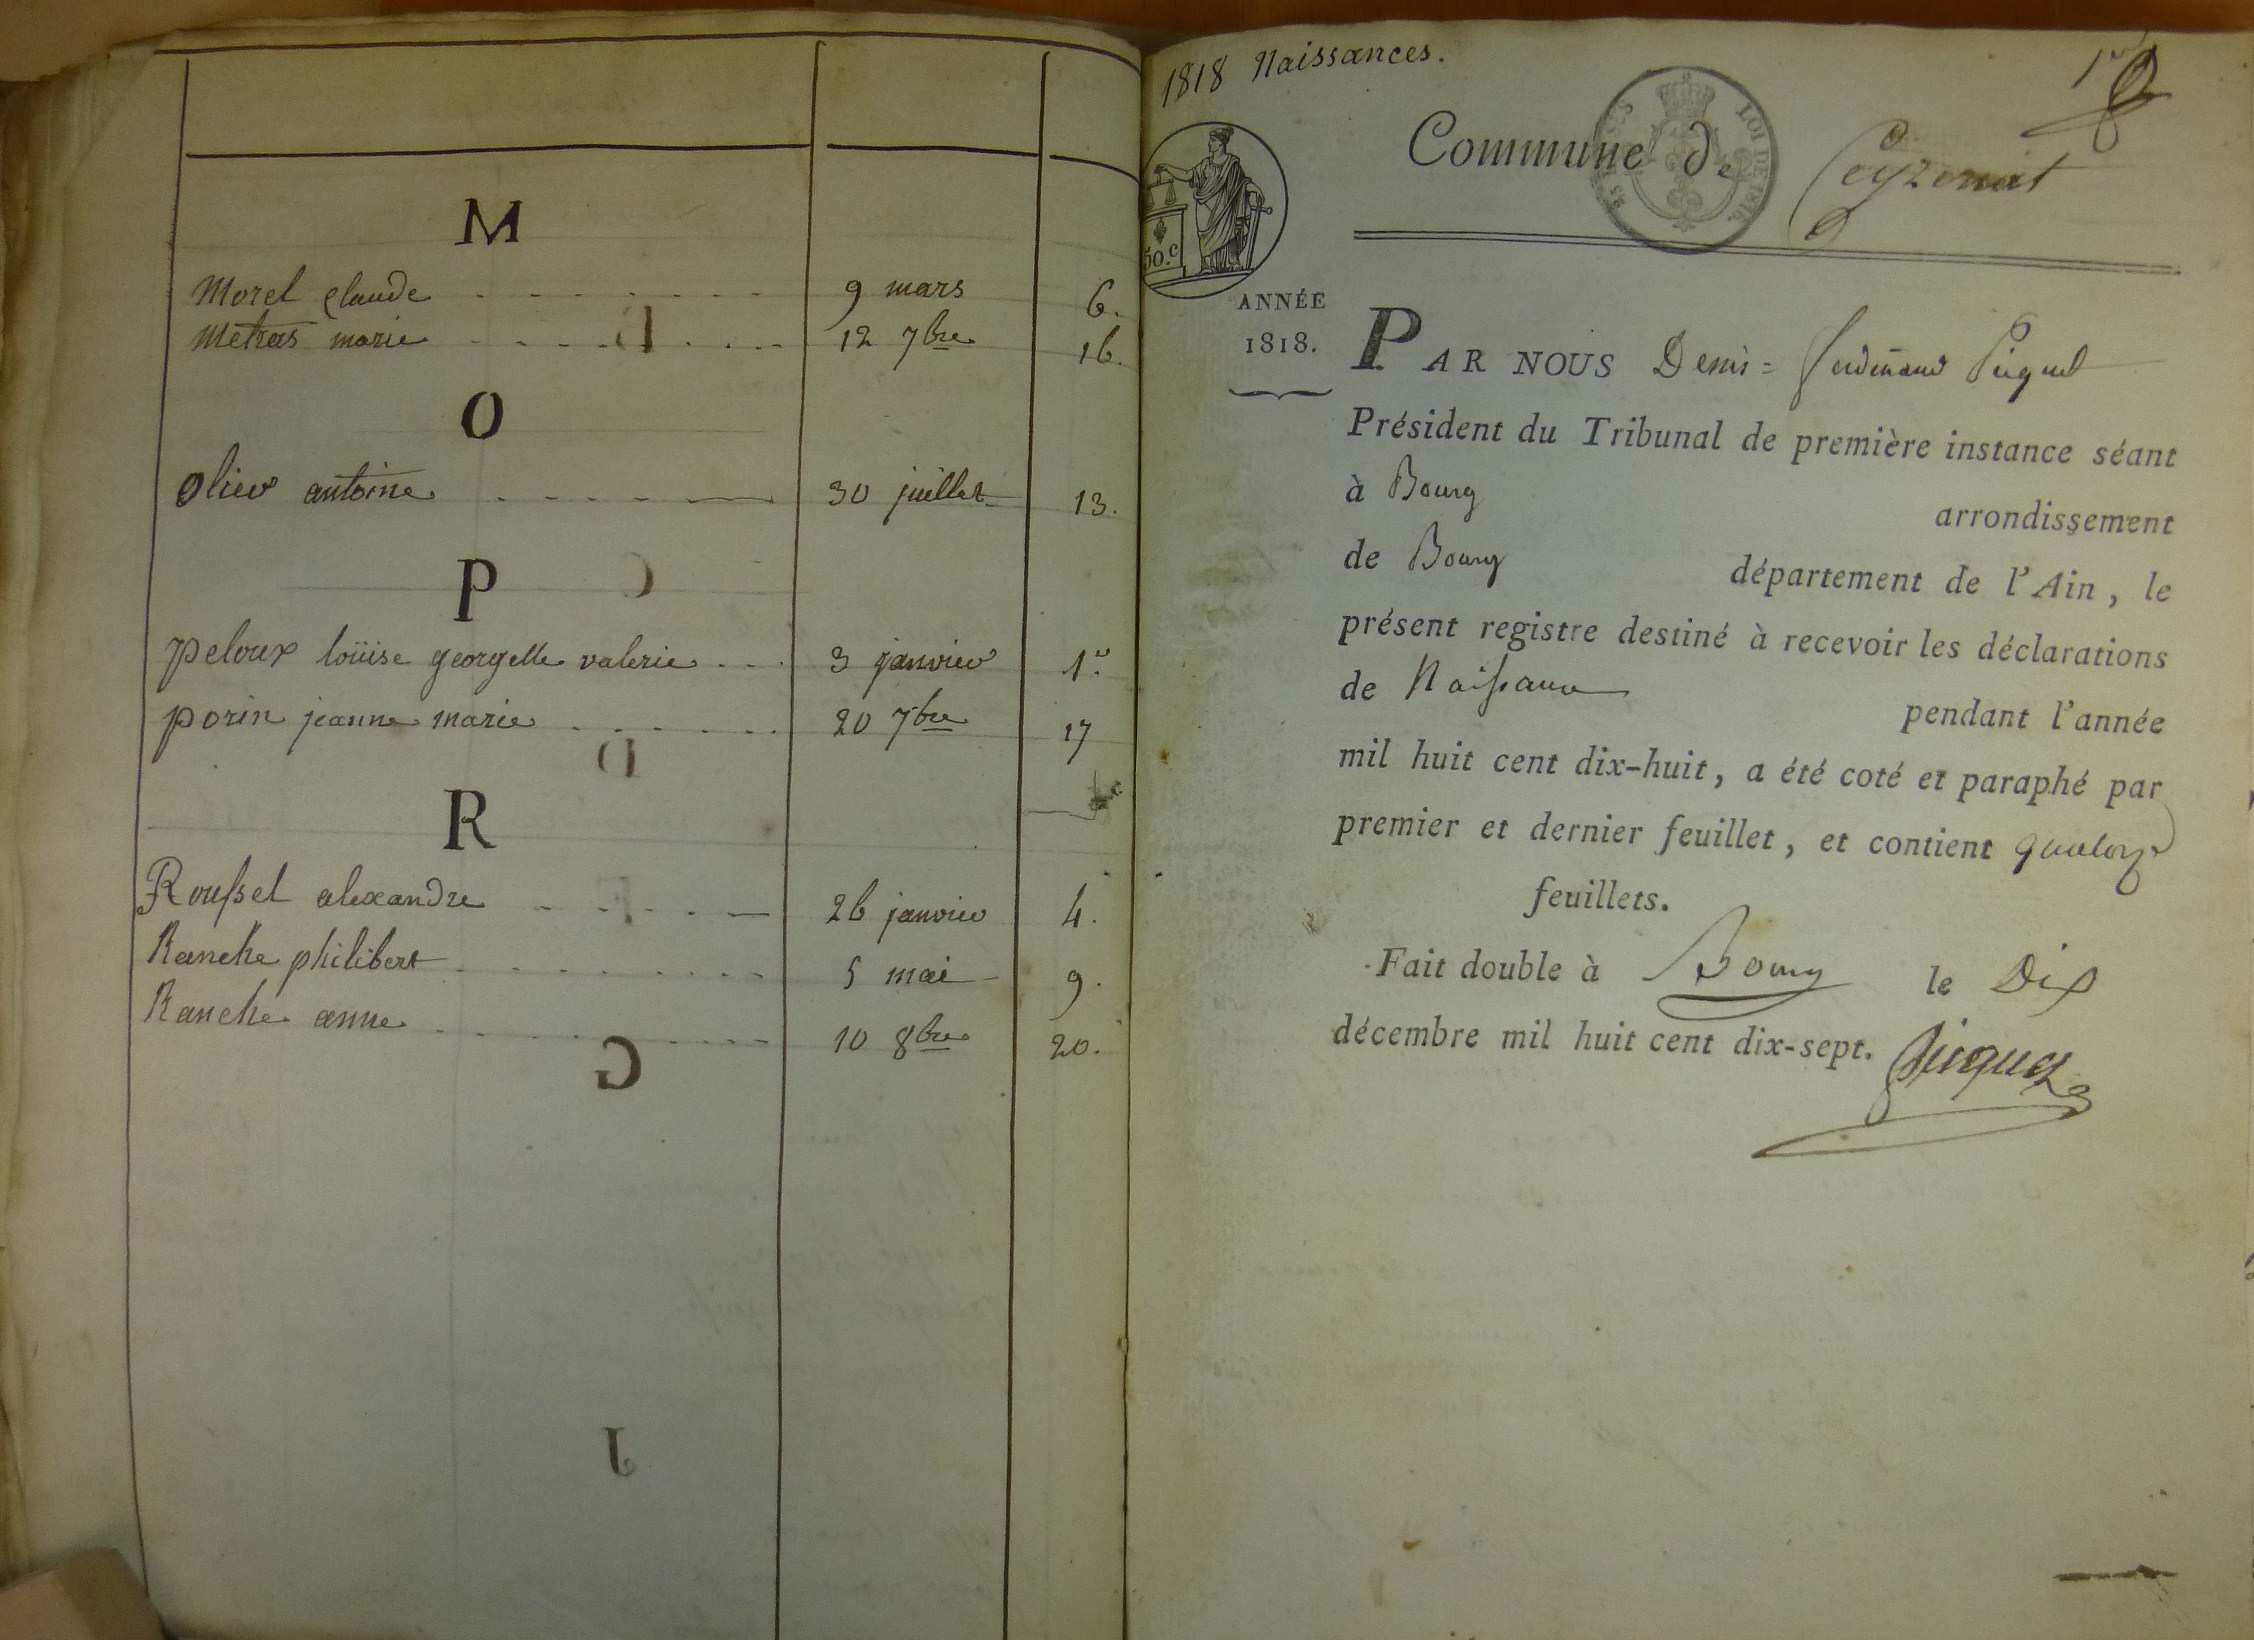 M
Morel claude 9 mars 6.
Metras marie 12 7bre 16.
O
olier antoine 30 juillet 13.
P
peloux loüise georgette valerie 3 janvier 1er
porin jeanne marie 20 7bre 17
R
Roussel alexandre 26 janvier 4.
Ranche philibert 5 mai 9.
Ranche anne 10 8bre 20.
1818 Naissances.
1er
LOI DE 1816
Commune de Ceyzeriat
50.c
ANNÉE
1818.
PAR NOUS Denis = ferdinand Picquet
Président du Tribunal de première instance séant
à Bourg arrondissement
de Bourg département de l'Ain, le
présent registre destiné à recevoir les déclarations
de Naissance pendant l'année
mil huit cent dix-huit, a été coté et paraphé par
premier et dernier feuillet, et contient quatorze
feuillets.
Fait double à Bourg le Dix
décembre mil huit cent dix-sept. Picquet